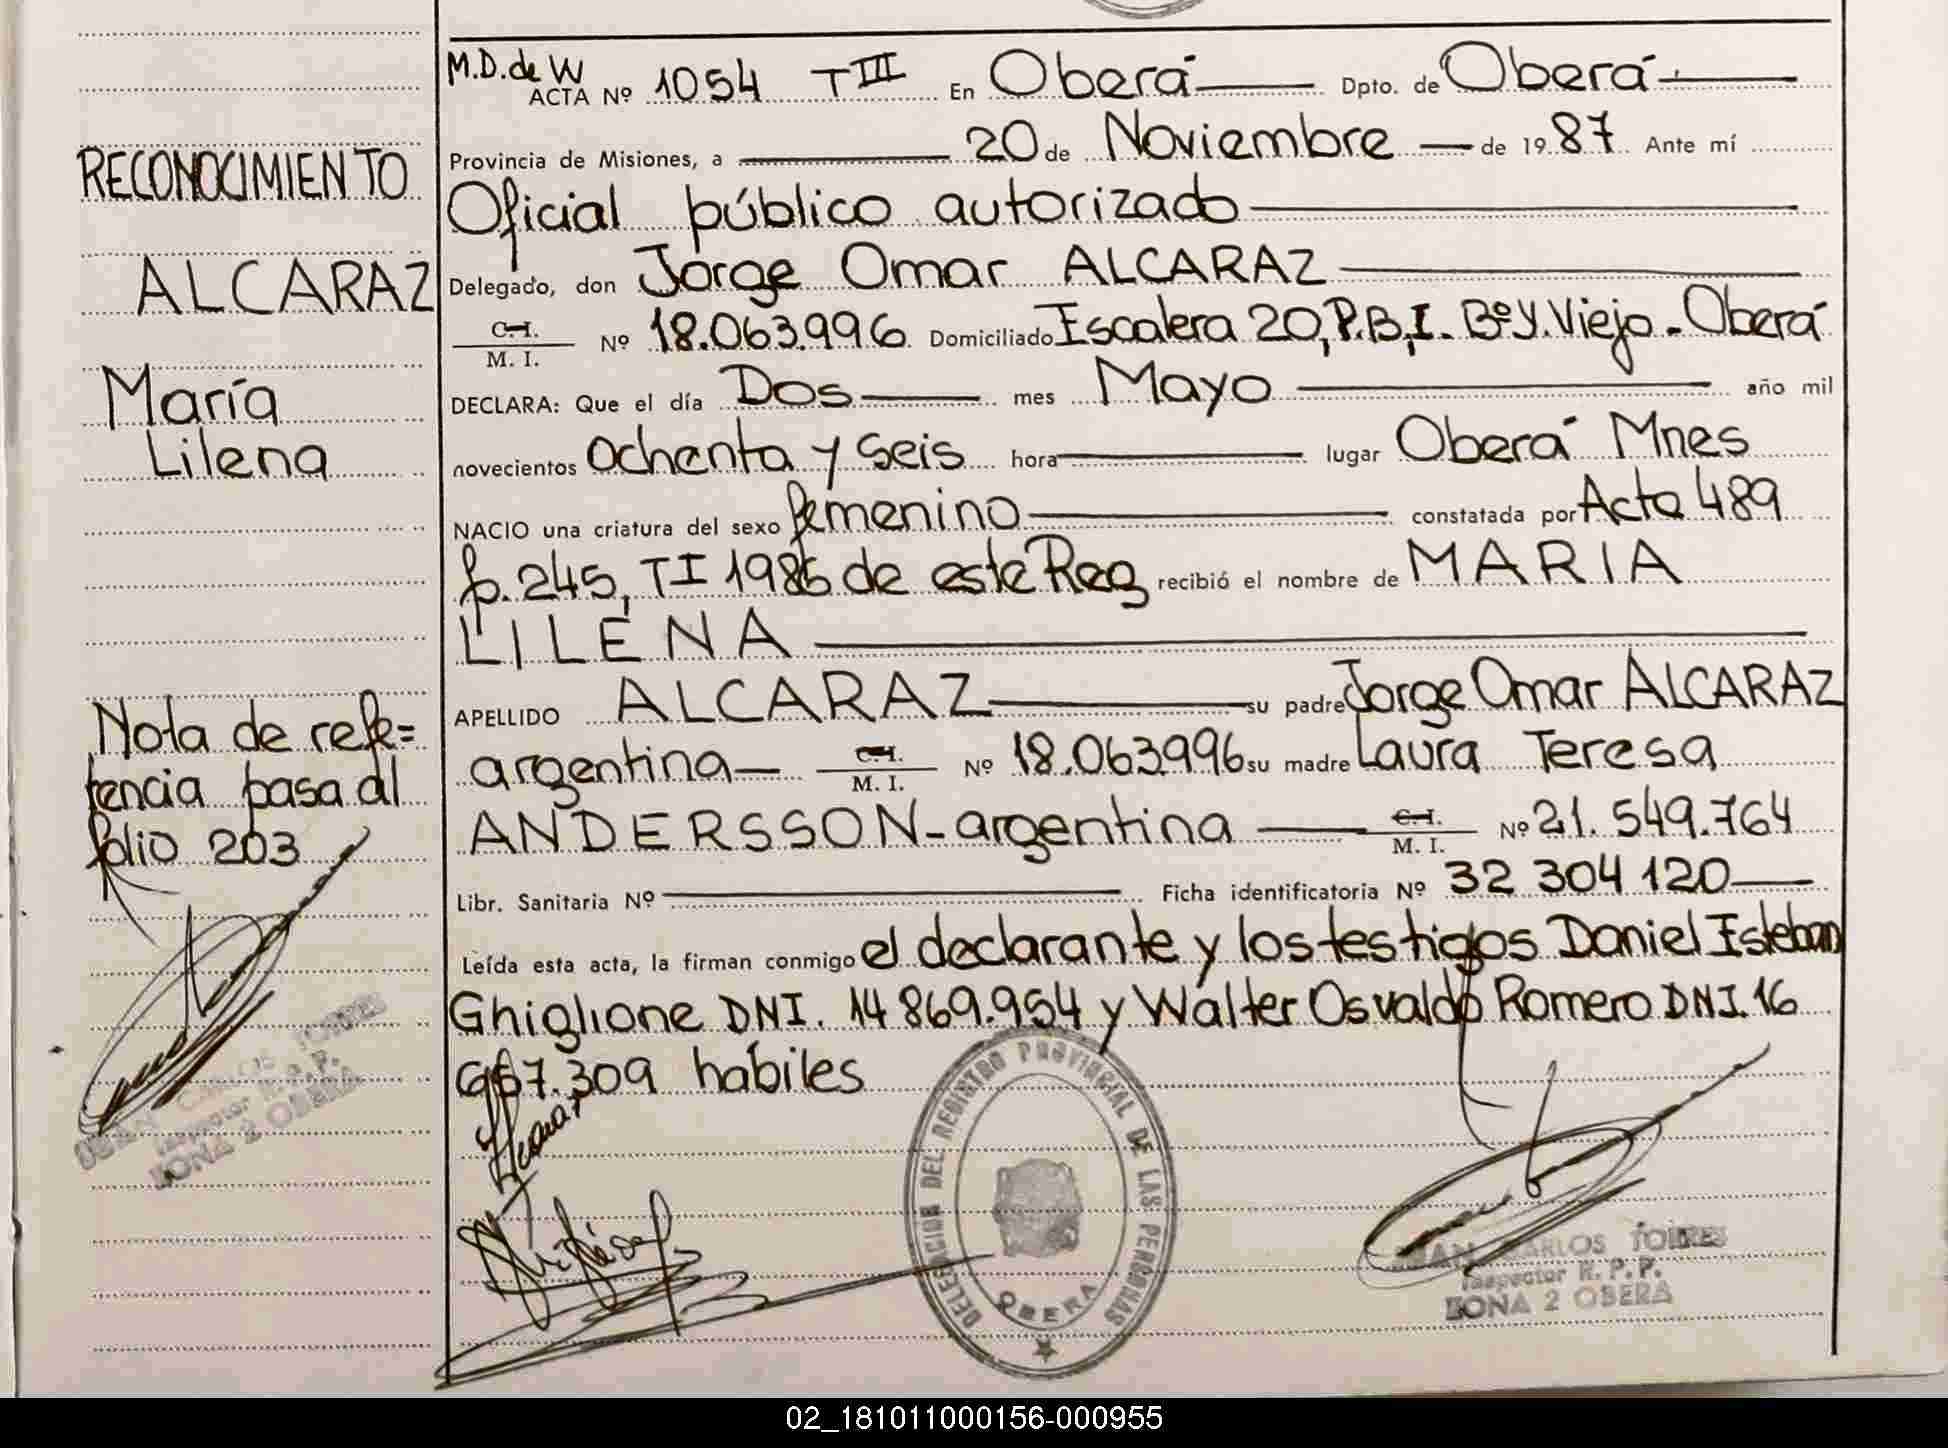 M.D. de W
ACTA Nº 1054 TIII En Oberá Dpto. de Oberá
Provincia de Misiones, a 20 de Noviembre de 1987 Ante mí
Oficial público autorizado
Delegado, don Jorge Omar ALCARAZ
C.I.
M. I. Nº 18.063.996 Domiciliado Escalera 20, P.B, I. Bº Y. Viejo - Oberá
DECLARA: Que el día Dos mes Mayo año mil
novecientos ochenta y seis hora lugar Oberá Mnes
NACIO una criatura del sexo femenino constatada por Acta 489
f. 245, TI 1986 de este Reg recibió el nombre de MARIA
LILENA
APELLIDO ALCARAZ su padre Jorge Omar ALCARAZ
argentina C.I.
M. I. Nº 18.063.996 su madre Laura Teresa
ANDERSSON - argentina C.I.
M. I. Nº 21.549.764
Libr. Sanitaria Nº Ficha identificatoria Nº 32 304 120
Leída esta acta, la firman conmigo el declarante y los testigos Daniel Esteban
Ghiglione DNI. 14 869.954 y Walter Osvaldo Romero DNI. 16
967.309 hábiles
RECONOCIMIENTO
ALCARAZ
María
Lilena
Nota de refe=
rencia pasa al
folio 203
JUAN CARLOS TORRES
Inspector R. P. P.
ZONA 2 OBERA
DELEGACION DEL REGISTRO PROVINCIAL DE LAS PERSONAS
OBERA
JUAN CARLOS TORRES
Inspector R. P. P.
ZONA 2 OBERA
02_181011000156-000955